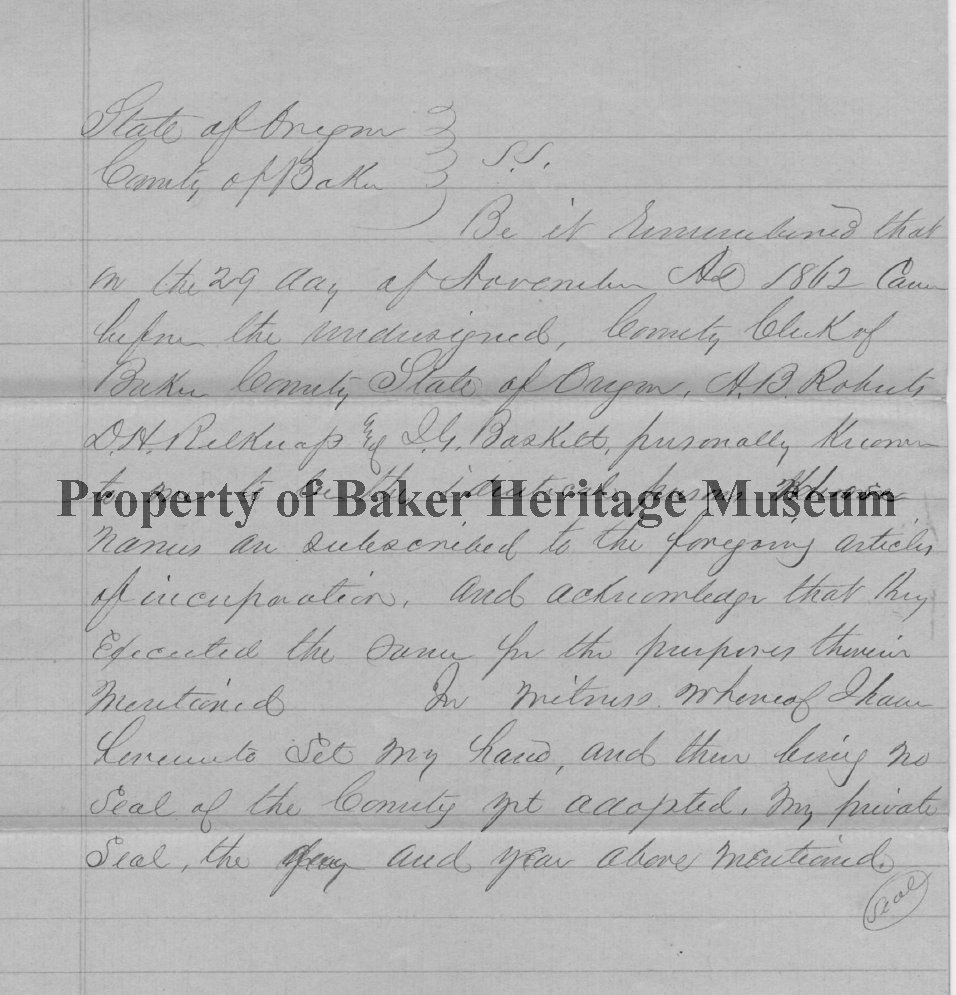 State of Oregon
County of Baker } S.S.
Be it Remembered that
on the 29 day of November AD 1862 Came
before the undersigned, County Clerk of
Baker County State of Oregon, A.B. Roberts
D.H. Belknap & I.G. Baskett, personally known
to me to be the identical persons whose
Property of Baker Heritage Museum
names are subscribed to the foregoing articles
of incorporation, and acknowledge that they
Executed the same for the purposes therein
Mentioned In Witness whereof I have
hereunto Set my hand, and there being no
Seal of the County yet adopted, my private
Seal, the day and year above mentioned.
Seal